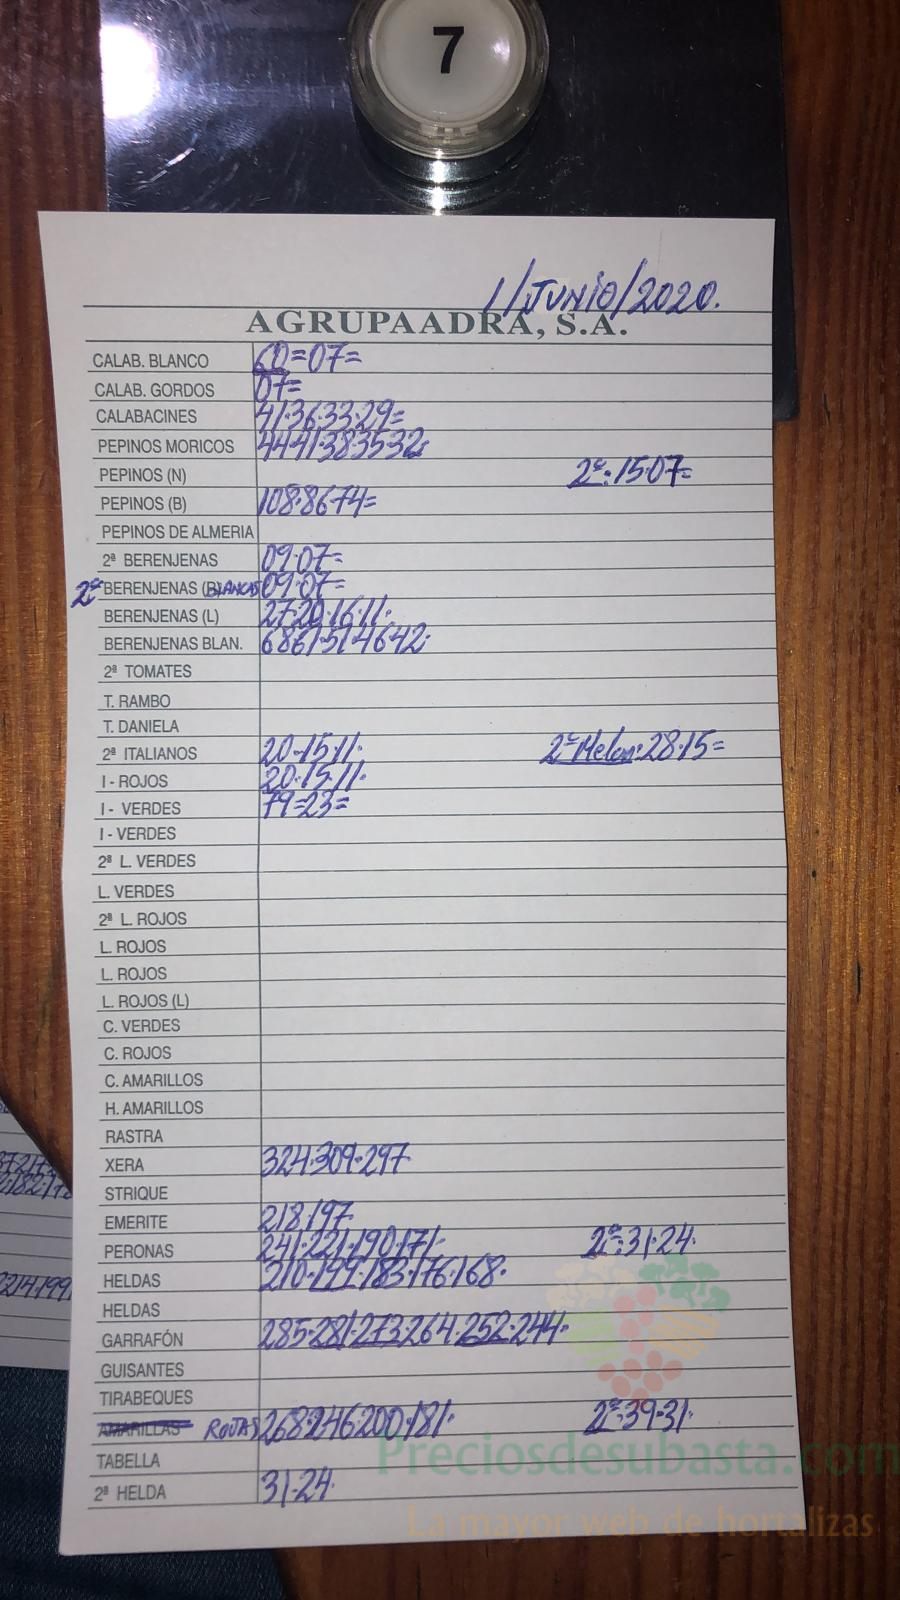 7
1/JUNIO/2020.
AGRUPAADRA, S.A.
CALAB. BLANCO 60=07=
CALAB. GORDOS 07=
CALABACINES 41·36·33·29=
PEPINOS MORICOS 44·41·38·35·32·
PEPINOS (N) 2ª: 15·07=
PEPINOS (B) 108·86·74=
PEPINOS DE ALMERIA
2ª BERENJENAS 09·07=
2ª BERENJENAS (BLANCAS 09·07=
BERENJENAS (L) 27·20·16·11·
BERENJENAS BLAN. 68·61·51·46·42·
2ª TOMATES
T. RAMBO
T. DANIELA
2ª ITALIANOS 20-15·11· 2ª Melon: 28·15=
I - ROJOS 20·15·11·
I - VERDES 79=23=
I - VERDES
2ª L. VERDES
L. VERDES
2ª L. ROJOS
L. ROJOS
L. ROJOS
L. ROJOS (L)
C. VERDES
C. ROJOS
C. AMARILLOS
H. AMARILLOS
RASTRA
XERA 324·309·297
STRIQUE
EMERITE 218·197·
PERONAS 241·221·190·171· 2ª: 31·24·
HELDAS 210·199·183·176·168·
HELDAS
GARRAFÓN 285·281·273·264·252·244·
GUISANTES
TIRABEQUES
AMARILLAS ROJAS 268·246·200·181· 2ª: 39·31·
TABELLA
2ª HELDA 31·24·
Preciosdesubasta.com
La mayor web de hortalizas